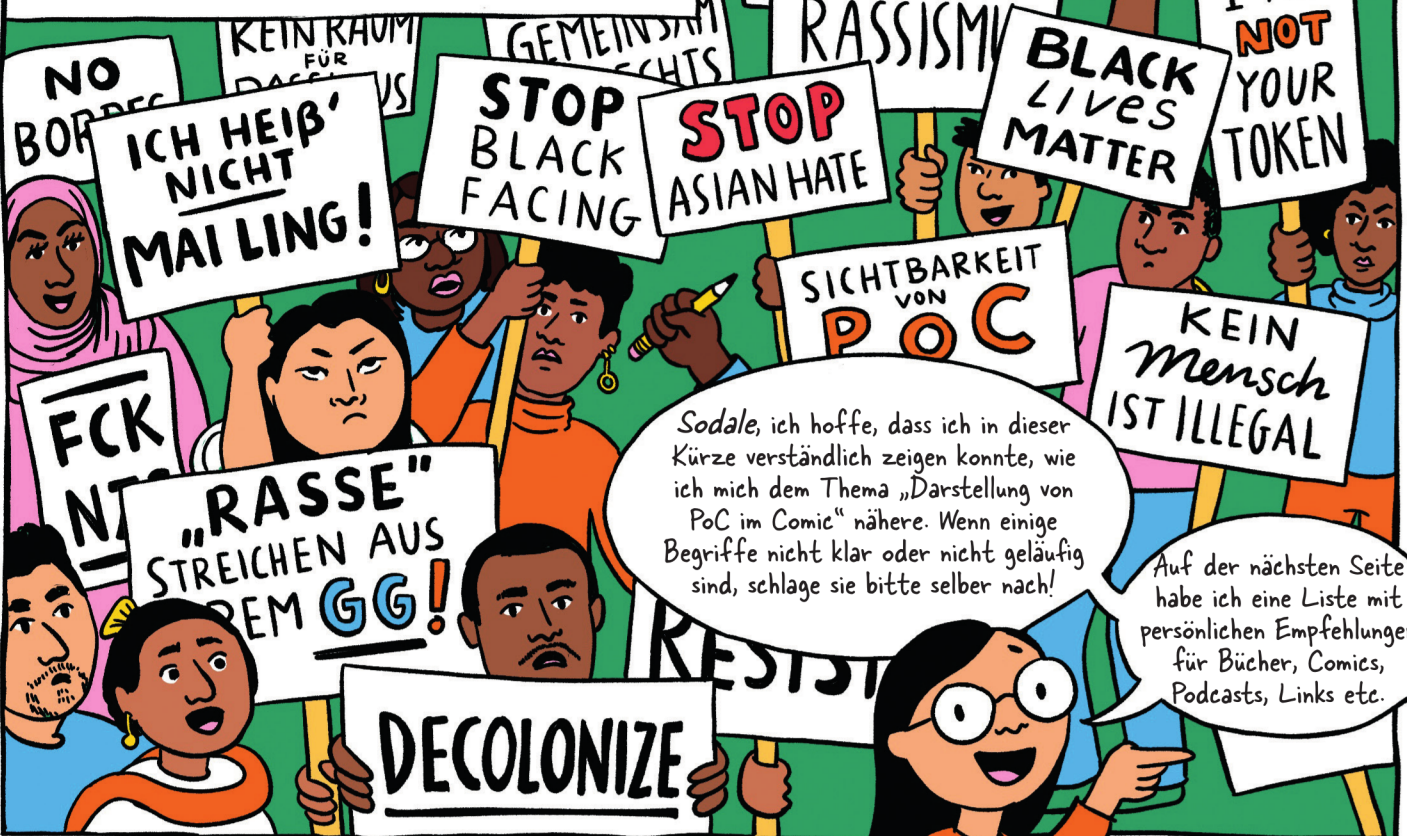 NO
KEIN RAUM
FÜR
GEMEINSAM
BLACK
LIVES
MATTER
NOT
YOUR
TOKEN
ICH HEIẞ'
NICHT
MAI LING!
STOP
BLACK
FACING
STOP
ASIAN HATE
SICHTBARKEIT
VON
POC
KEIN
Mensch
IST ILLEGAL
FCK
„RASSE"
STREICHEN AUS
GG!
DECOLONIZE
Sodale, ich hoffe, dass ich in dieser
Kürze verständlich zeigen konnte, wie
ich mich dem Thema „Darstellung von
PoC im Comic“ nähere. Wenn einige
Begriffe nicht klar oder nicht geläufig
sind, schlage sie bitte selber nach!
Auf der nächsten Seite
habe ich eine Liste mit
persönlichen
für Bücher, Comics,
Podcasts, Links etc.